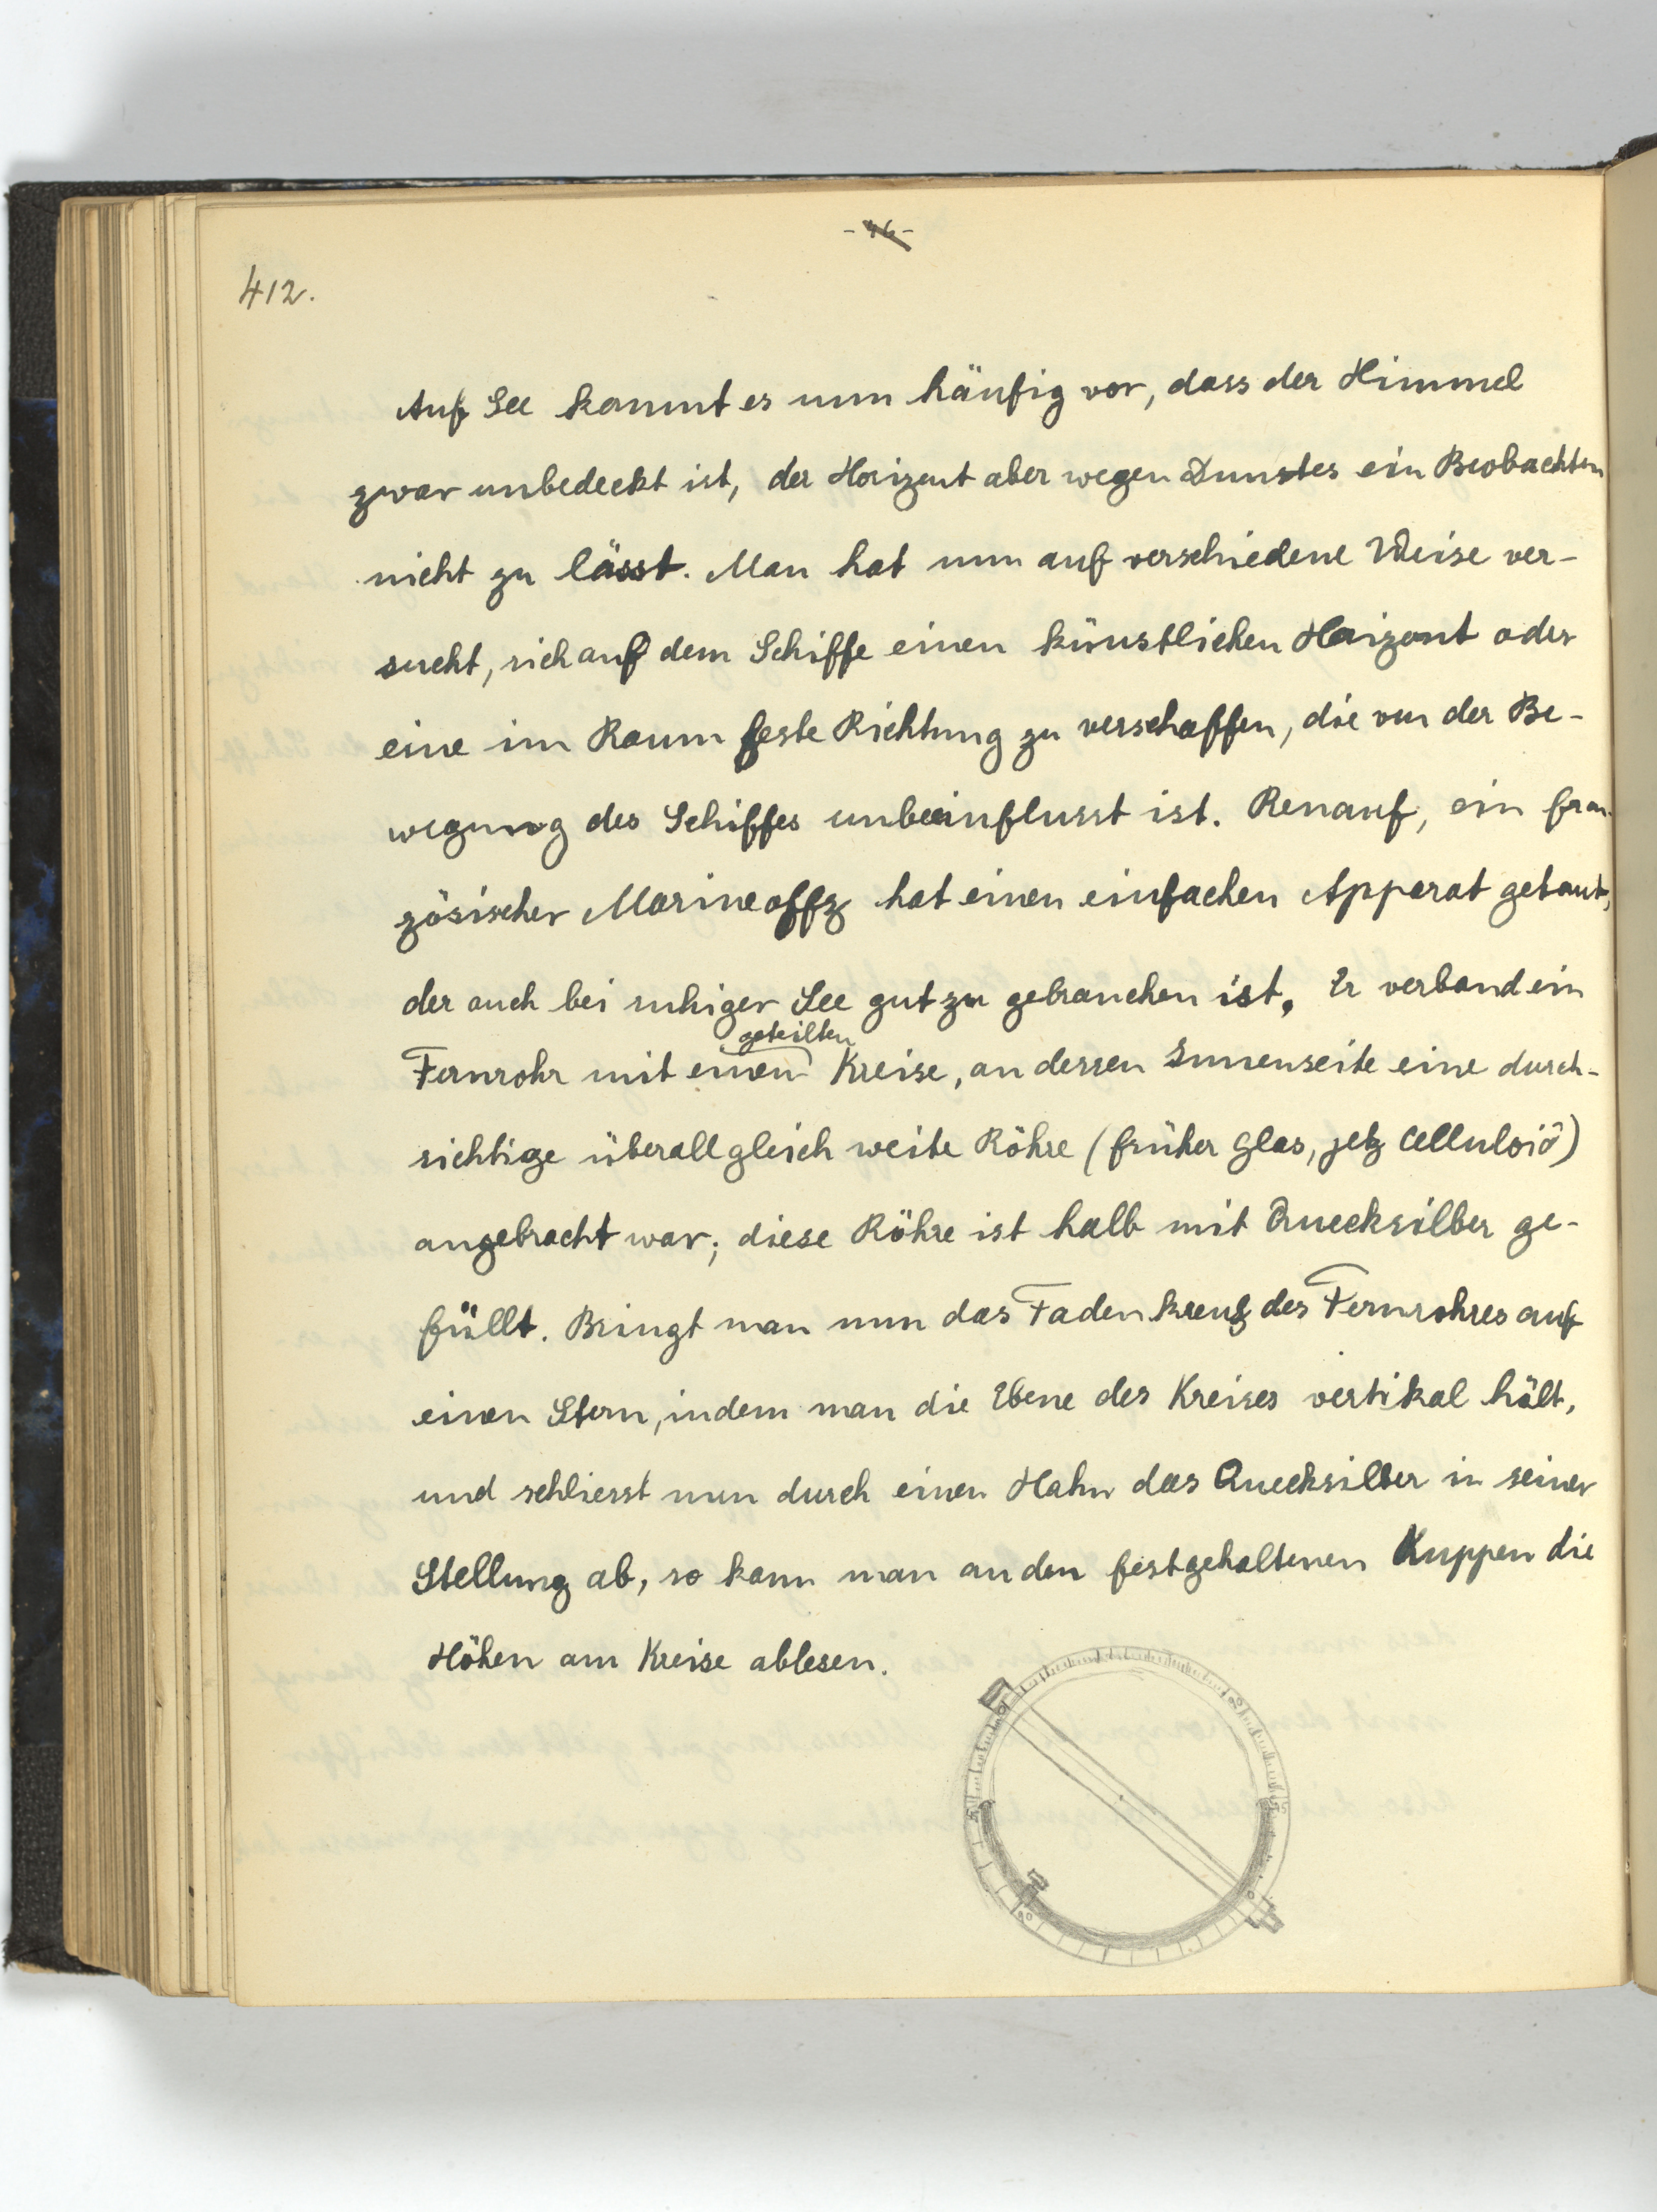 - 46 -
412.
Auf See kommt es nun häufig vor, dass der Himmel
zwar unbedeckt ist, der Horizont aber wegen Dunstes ein Beobachten
nicht zu lässt. Man hat nun auf verschiedene Weise ver-
sucht, sich auf dem Schiffe einen künstlichen Horizont oder
eine im Raum feste Richtung zu verschaffen, die von der Be-
wegung des Schiffes unbeeinflusst ist. Renauf, ein fran-
zösischer Marineoffz hat einen einfachen Apparat gebaut,
der auch bei ruhiger See gut zu gebrauchen ist. Er verband ein
geteilten
Fernrohr mit einen Kreise, an dessen Innenseite eine durch-
sichtige überall gleich weite Röhre (früher Glas, jetz Celluloid)
angebracht war; diese Röhre ist halb mit Quecksilber ge-
füllt. Bringt man nun das Fadenkreuz des Fernrohres auf
einen Stern, indem man die Ebene des Kreises vertikal hält,
und schliesst nun durch einen Hahn das Quecksilber in seiner
Stellung ab, so kann man an den festgehaltenen Kuppen die
Höhen am Kreise ablesen.